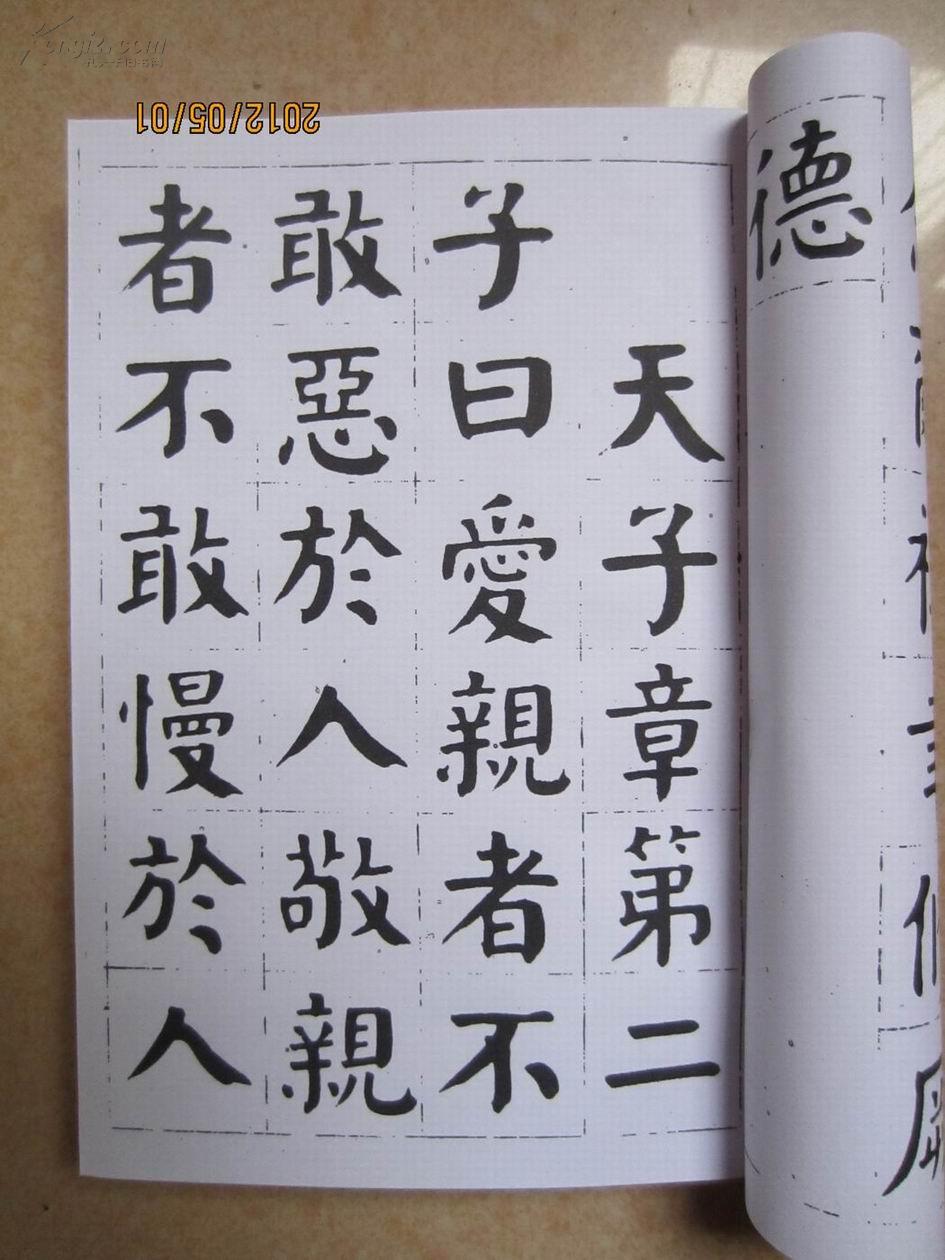 Kongfz.com
2012/05/01
德
天子章第二
子曰愛親者不
敢惡於人敬親
者不敢慢於人